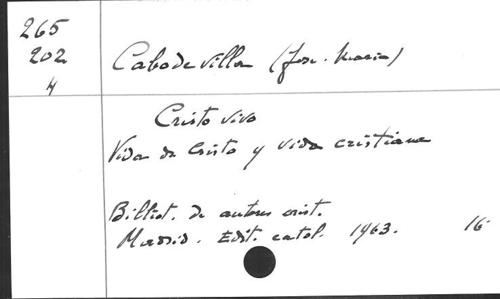 265
202
4
Cabodevilla (José-Maria)
Cristo vivo
Vida de Cristo y vida cristiana
Bibliot. de autores crist.
Madrid. Edit. catol. 1963. 16-